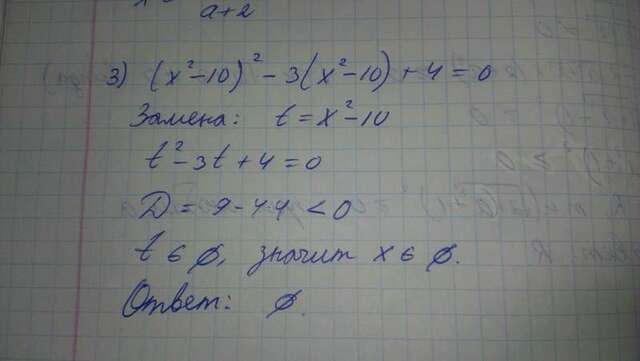 a+2
3) (x²-10)² - 3(x²-10) + 4 = 0
Замена: t = x²-10
t² - 3t + 4 = 0
D = 9 - 4·4 < 0
t ∈ ∅, значит x ∈ ∅.
Ответ: ∅.